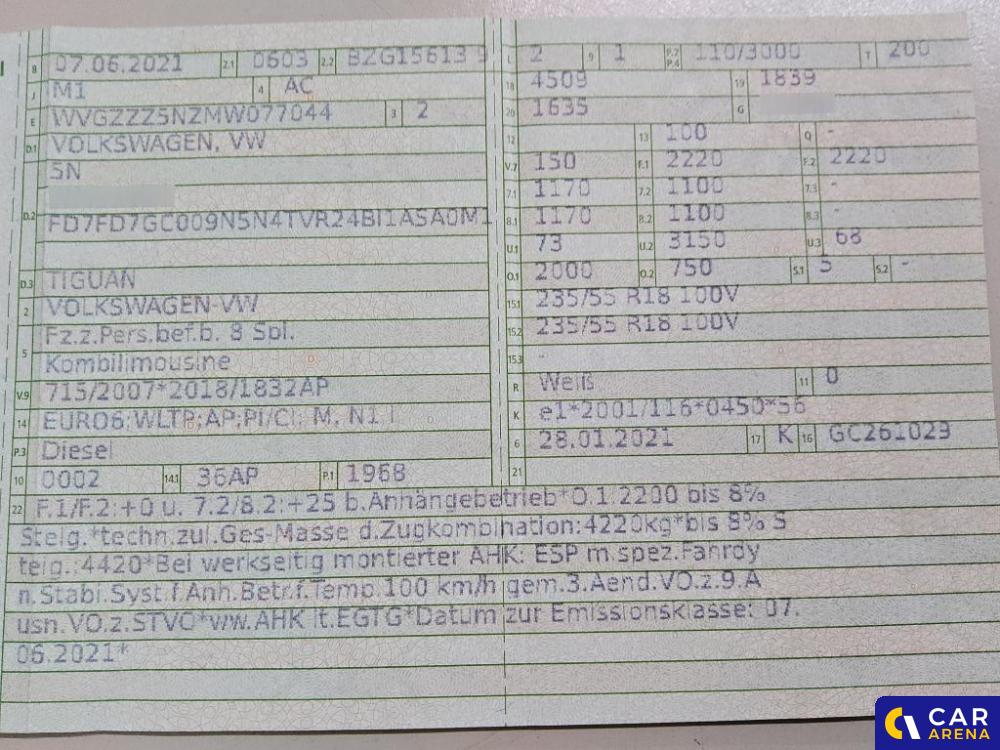 B 07.06.2021 2.1 0603 2.2 BZG15613 9
J M1 4 AC
E WVGZZZ5NZMW077044 3 2
D.1 VOLKSWAGEN, VW
5N
D.2 FD7FD7GC009N5N4TVR24BI1ASA0M1
D.3 TIGUAN
2 VOLKSWAGEN-VW
5 Fz.z.Pers.bef.b. 8 Spl.
Kombilimousine
V.9 715/2007*2018/1832AP
14 EURO6;WLTP;AP;PI/CI; M, N1 I
P.3 Diesel
10 0002 14.1 36AP P.1 1968
L 2 9 1 P.2 P.4 110/3000 T 200
18 4509 19 1839
20 1635 G
12 13 100 Q -
V.7 150 F.1 2220 F.2 2220
7.1 1170 7.2 1100 7.3 -
8.1 1170 8.2 1100 8.3 -
U.1 73 U.2 3150 U.3 68
O.1 2000 O.2 750 S.1 5 S.2 -
15.1 235/55 R18 100V
15.2 235/55 R18 100V
15.3 -
R Weiß 11 0
K e1*2001/116*0450*56
6 28.01.2021 17 K 16 GC261029
21
22 F.1/F.2:+0 u. 7.2/8.2:+25 b.Anhängebetrieb*O.1:2200 bis 8%
Steig.*techn.zul.Ges-Masse d.Zugkombination:4220kg*bis 8% S
teig.:4420*Bei werkseitig montierter AHK: ESP m.spez.Fahrdy
n.Stabi.Syst.f.Anh.Betr.f.Temp.100 km/h gem.3.Aend.VO.z.9.A
usn.VO.z.STVO*ww.AHK lt.EGTG*Datum zur Emissionsklasse: 07.
06.2021*
CAR
ARENA